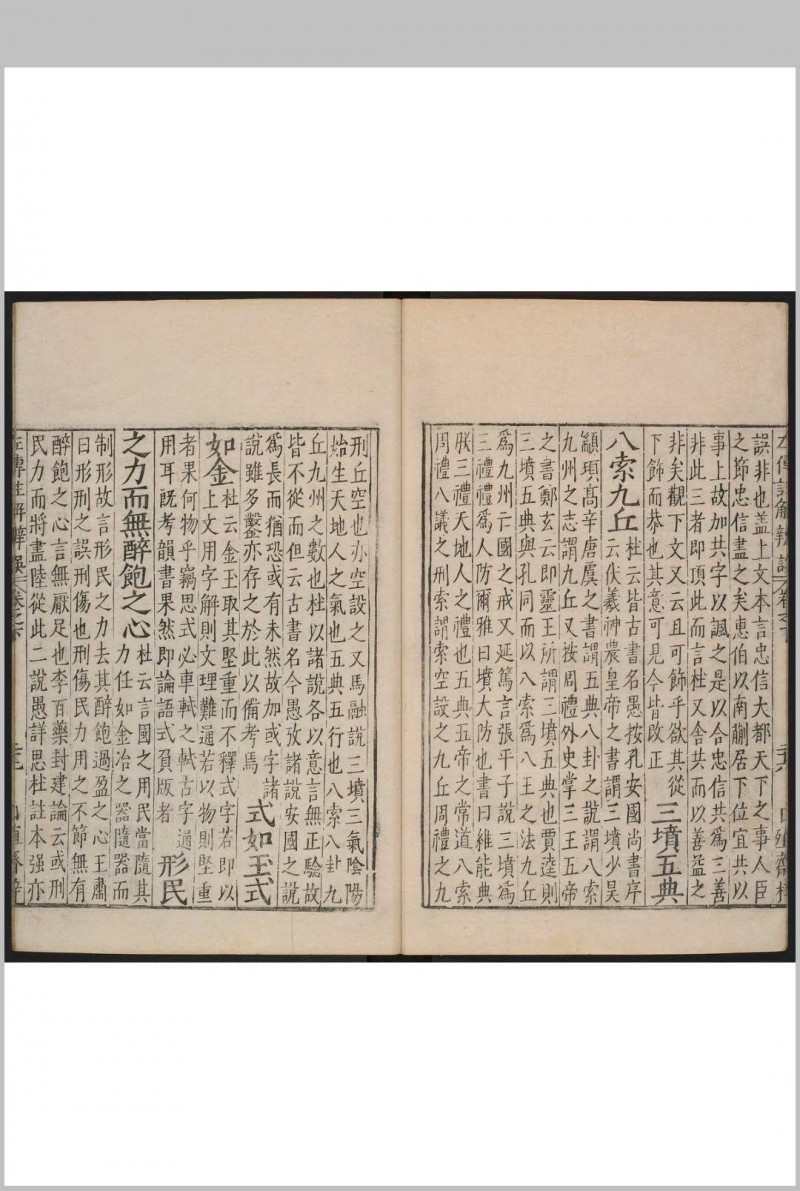 左傳註解辨誤 卷之下
誤非也盖上文本言忠信大都天下之事人臣
之節忠信盡之矣惠伯以南蒯居下位宜共以
事上故加共字以諷之是以合忠信共為三善
非此三者即頂此而言杜又舍共而以善益之
非矣觀下文又云且可飾乎欲其從
下飾而恭也其意可見今皆改正 三墳五典
八索九丘 杜云皆古書名愚按孔安國尚書序
云伏羲神農黃帝之書謂三墳少昊
顓頊髙辛唐虞之書謂五典八卦之說謂八索
九州之志謂九丘又按周禮外史掌三王五帝
之書鄭玄云即靈王所謂三墳五典也賈逵則
三墳五典與孔同而以八索為八王之法九丘
為九州亡國之戒又延篤言張平子說三墳
三禮禮為人防爾雅曰墳大防也書曰維能典
朕三禮禮天地人之禮也五典五帝之常道八索
周禮八議之刑索謂索空設之九丘周禮之九
刑丘空也亦空設之又馬融說三墳三氣陰陽
始生天地人之氣也五典五行也八索八卦九
丘九州之數也杜以諸說各以意言無正驗故
皆不從而但云古書名今愚攷諸說安國之說
為長而猶恐或有未然故加或字諸
說雖多鑿亦存之於此以備考焉 式如玉式
如金 杜云金玉取其堅重而不釋式字若即以
上文用字解則文理難通若以物則堅重
者果何物乎竊思式必車軾之軾古字通
用耳旣考韻書果然即論語式負版者 形民
之力而無醉飽之心 杜云言國之用民當隨其
力任如金冶之器隨器而
制形故言形民之力去其醉飽過盈之心王肅
曰形刑之誤刑傷也刑傷民力用之不節無有
醉飽之心言無厭足也李百藥封建論云或刑
民力而將盡陸從此二說愚詳思杜註本强亦
左傳註解辨誤 卷之下